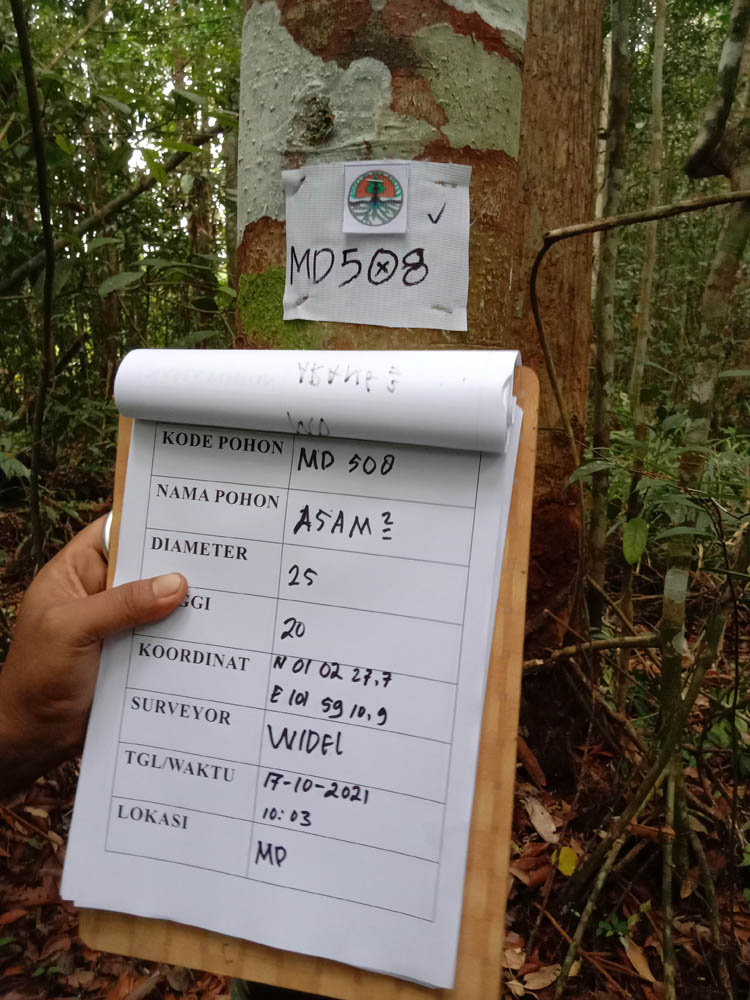 MD508
KODE POHON MD 508
NAMA POHON ASAM2
DIAMETER 25
GGI 20
KOORDINAT N 01 02 27,7
E 101 59 10,9
SURVEYOR WIDEL
TGL/WAKTU 17-10-2021
10:03
LOKASI MD